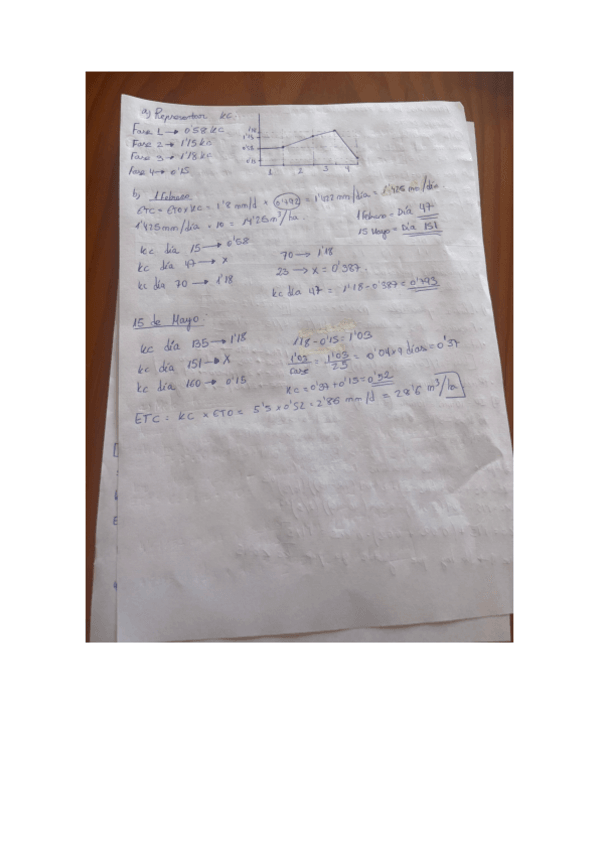 a) Representar kc.
Fase 1 → 0'58 kc
Fase 2 → 1'15 kc
Fase 3 → 1'18 kc
Fase 4 → 0'15
1 2 3 4
b) 1 Febrero
ETC = ETO x KC = 1'8 mm/d × 0'792 = 1'422 mm/día = 1'425 mm/día
1'425 mm/día × 10 = 14'25 m³/ha.
1 Febrero = Día 47
15 Mayo = Día 151
kc día 15 → 0'58
kc día 47 → x
kc día 70 → 1'18
70 → 1'18
23 → x = 0'387.
kc día 47 = 1'18 - 0'387 = 0'793
15 de Mayo
kc día 135 → 1'18
kc día 151 → X
kc día 160 → 0'15
1'18 - 0'15 = 1'03
1'03/fase = 1'03/25 = 0'04 x 9 días = 0'37
KC = 0'37 + 0'15 = 0'52
ETC = KC x ETO = 5'5 x 0'52 = 2'86 mm/d = 28'6 m³/ha